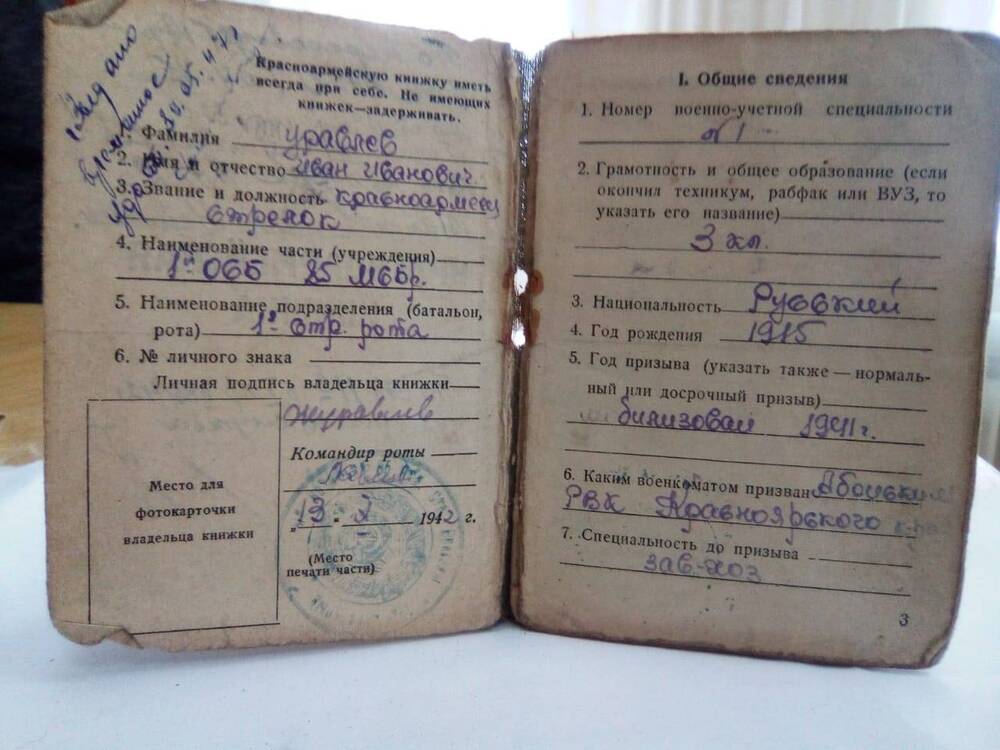 Красноармейскую книжку иметь
всегда при себе. Не имеющих
книжек—задерживать.
1. Фамилия Журавлев
2. Имя и отчество Иван Иванович.
3. Звание и должность красноармеец
стрелок
4. Наименование части (учреждения)
1й ОСБ 25 МСБр.
5. Наименование подразделения (батальон,
рота) 1я стр. рота
6. № личного знака
Личная подпись владельца книжки
Журавлев
Командир роты
Место для
фотокарточки
владельца книжки
„13 1942 г.
(Место
печати части)
I. Общие сведения
1. Номер военно-учетной специальности
№ 1
2. Грамотность и общее образование (если
окончил техникум, рабфак или ВУЗ, то
указать его название)
3 кл.
3. Национальность Русский
4. Год рождения 1915
5. Год призыва (указать также — нормаль-
ный или досрочный призыв)
мобилизован 1941 г.
6. Каким военкоматом призван
РВК Красноярского
7. Специальность до призыва
зав-хоз
3